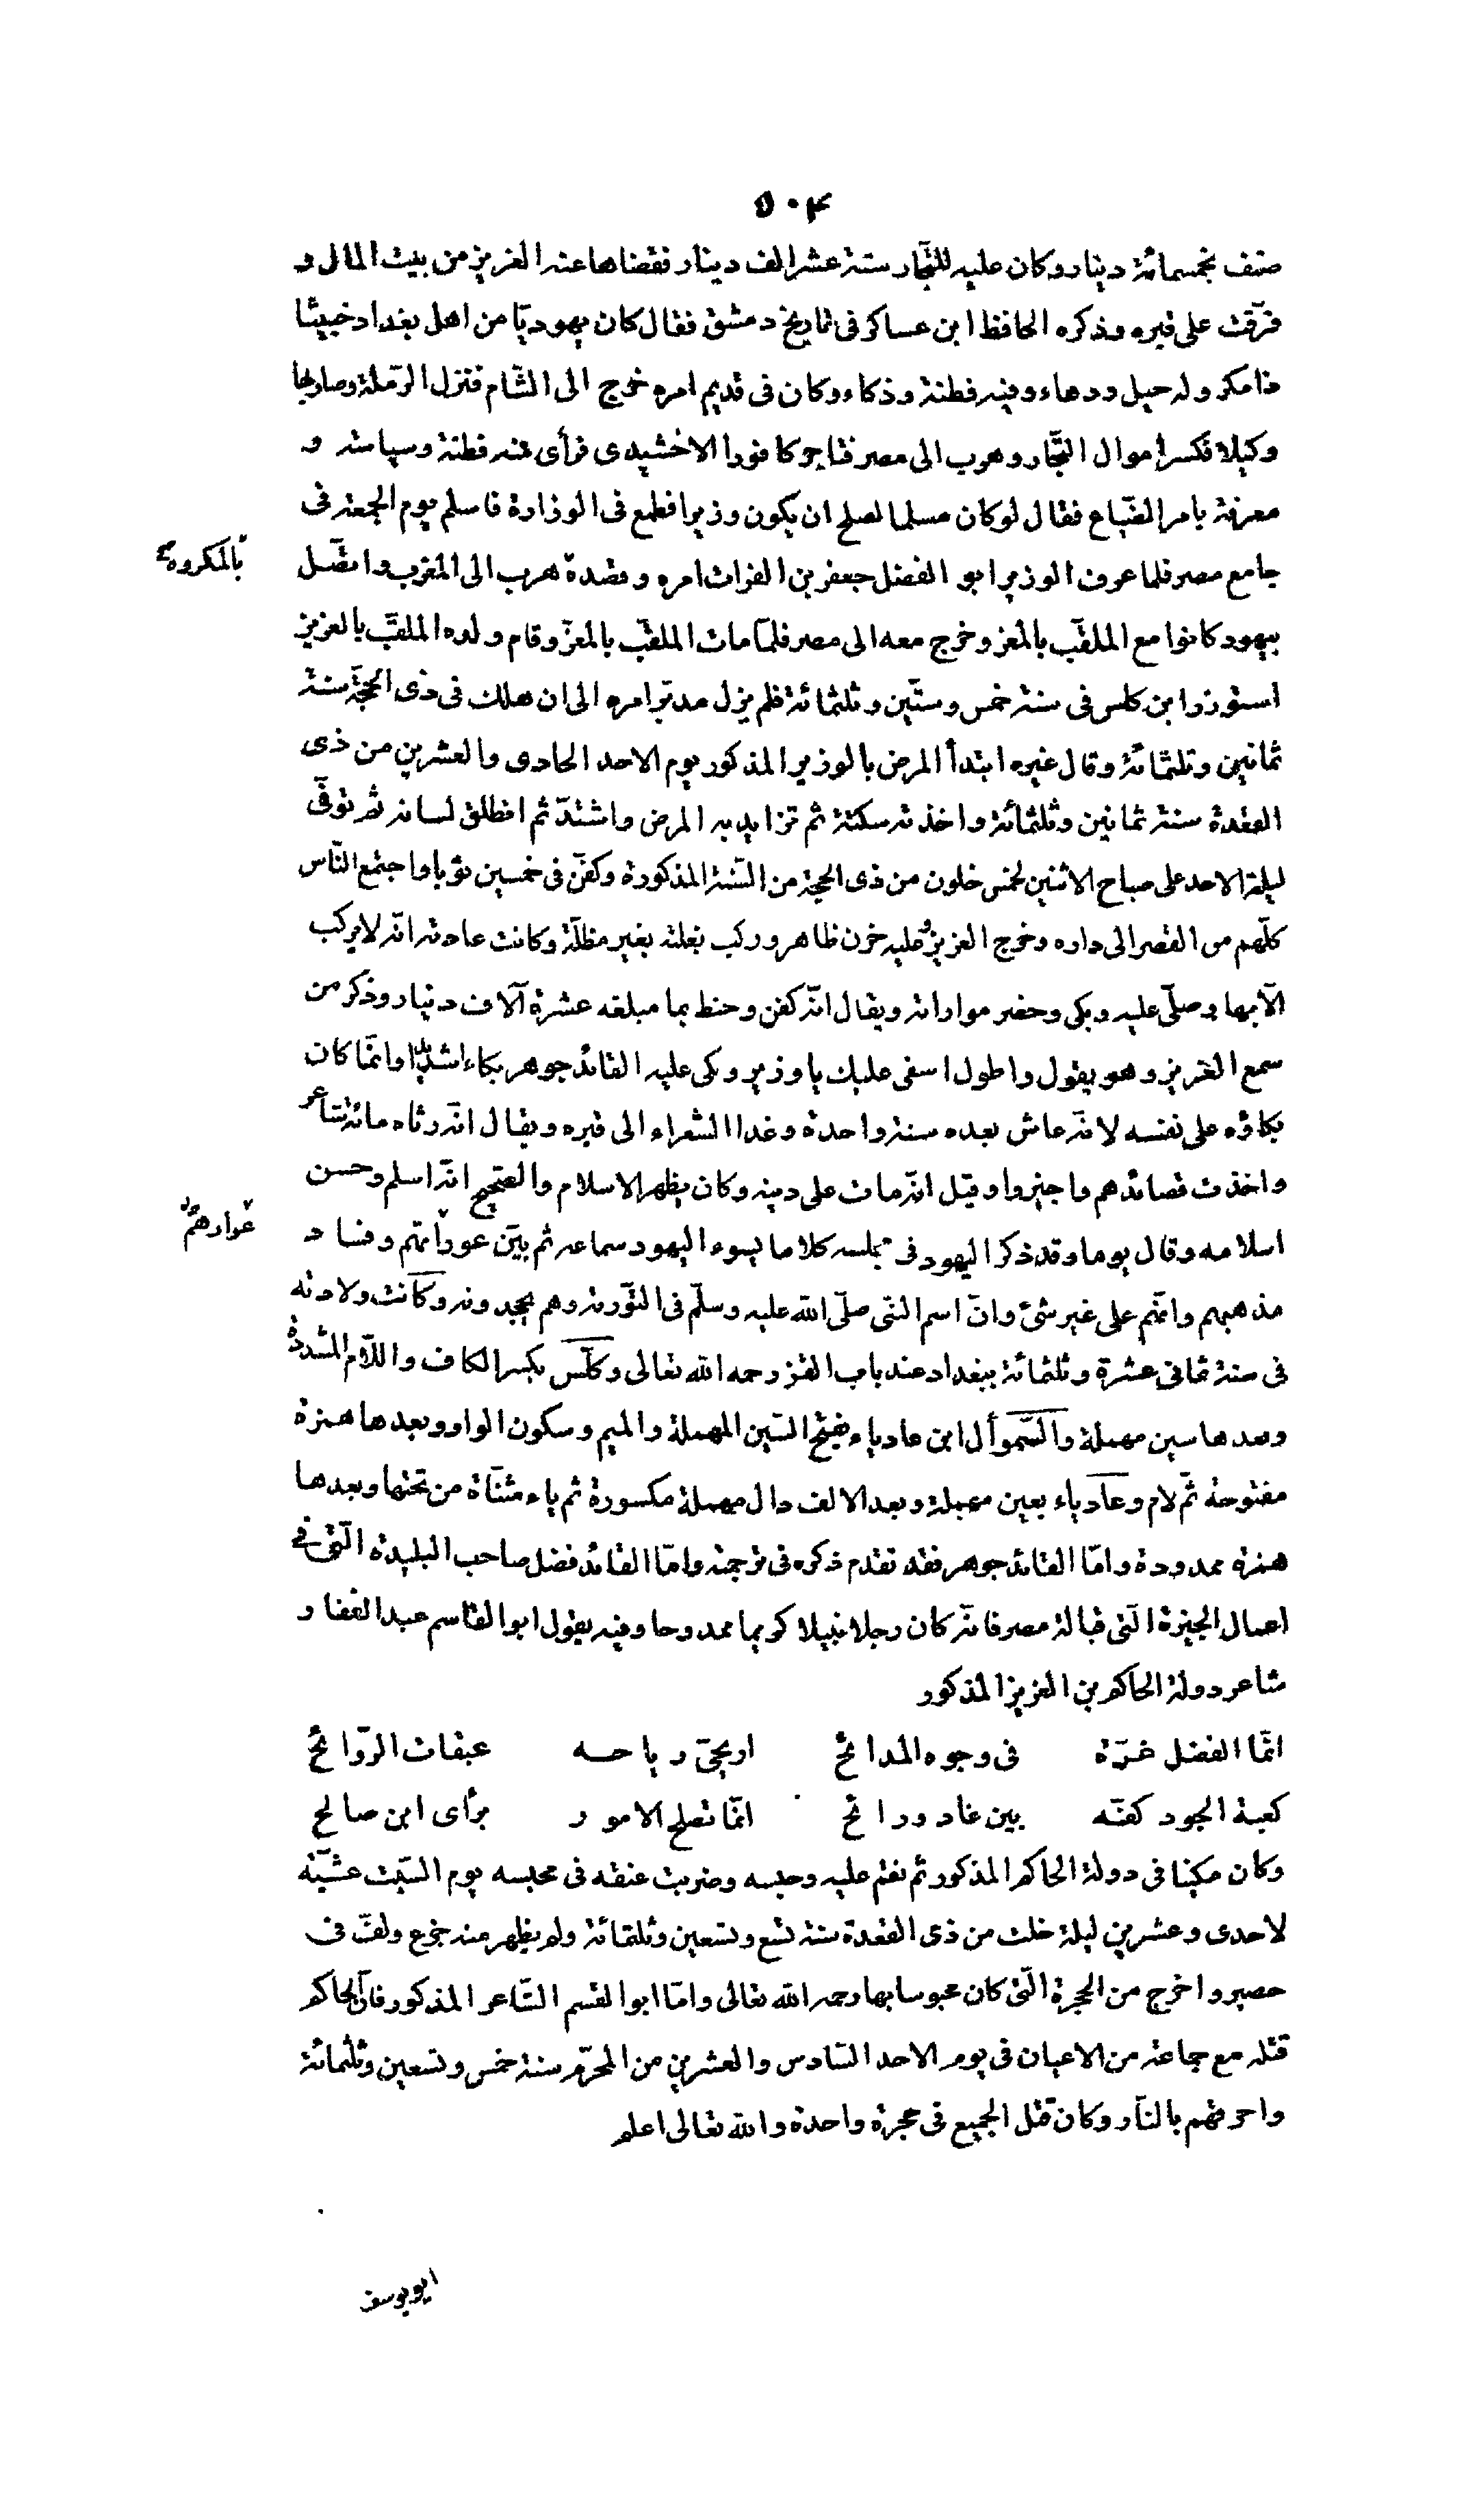 ٥٠٤
صنف بخمسمائة دينار وكان عليه للتجّار ستة عشر الف دينار فقضاها عنه العزيز من بيت المال و
فرّقت على قبره وذكره الحافظ ابن عساكر فى تاريخ دمشق فقال كان يهوديّا من اهل بغداد خبيثا
ذا مكر وله حيل ودهاء وفيه فطنة وذكاء وكان فى قديم امره خرج الى الشّام فنزل الرّملة وصار بها
وكيلا فكسر اموال التجّار وهرب الى مصر فتاجر كافورا الاخشيدى فرأى منه فطنة وسياسة و
معرفة بامر الضّياع فقال لو كان مسلما لصلح ان يكون وزيرا فطمع فى الوزارة فاسلم يوم الجمعة فى
جامع مصر فلما عرف الوزير ابو الفضل جعفر بن الفرات امره وقصده هرب الى المغرب واتّصل
بالمكروه
بيهود كانوا مع الملقّب بالمعز وخرج معه الى مصر فلمّا مات الملقّب بالمعزّ وقام ولده الملقّب بالعزيز
استوزر ابن كلس فى سنة خمس وستّين وثلثمائة فلم يزل مدبّر امره الى ان هلك فى ذى الحجّة سنة
ثمانين وثلثمائة وقال غيره ابتدأ المرض بالوزير المذكور يوم الاحد الحادى والعشرين من ذى
القعدة سنة ثمانين وثلثمائة واخذته سكتة ثم تزايد به المرض واشتدّ ثم انطلق لسانه ثم توفّى
ليلة الاحد على صباح الاثنين لخمس خلون من ذى الحجة من السّنة المذكورة وكفّن فى خمسين ثوبا واجتمع النّاس
كلّهم من القصر الى داره وخرج العزيز وعليه حزن ظاهر وركب بغلته بغير مظلّة وكانت عادته انّه لا يركب
الّا بها وصلّى عليه وبكى وحضر مواراته ويقال انّه كفن وحنط بما مبلغه عشرة آلاف دينار وذكر من
سمع العزيز وهو يقول واطول اسفى عليك يا وزير وبكى عليه القائد جوهر بكاء شديدا وانّما كان
بكاؤه على نفسه لانّه عاش بعده سنة واحدة وغدا الشعراء الى قبره ويقال انّه رثاه مائة شاعر
واخذت قصائدهم واجيزوا وقيل انّه مات على دينه وكان يظهر الاسلام والصّحيح انّه اسلم وحسن
اسلامه وقال يوما وقد ذكر اليهود فى مجلسه كلاما يسوء اليهود سماعه ثم بيّن عوراتهم وفساد
عوارهم
مذهبهم وانّهم على غير شئ وانّ اسم النّبى صلّى الله عليه وسلّم فى التّورية وهم يجحدونه وكانت ولادته
فى سنة ثمانى عشرة وثلثمائة ببغداد عند باب القز رحمه الله تعالى وكلّس بكسر الكاف واللّام المشدّدة
وبعدها سين مهملة والسّموأل ابن عادياء بفتح السّين المهملة والميم وسكون الواو وبعدها همزة
مفتوحة ثم لام وعادياء بعين مهملة وبعد الالف دال مهملة مكسورة ثم ياء مثنّاة من تحتها وبعدها
همزة ممدودة وامّا القائد جوهر فقد تقدم ذكره فى ترجمته وامّا القائد فضل صاحب البليدة الّتى فى
اعمال الجيزة الّتى قبالة مصر فانّه كان رجلا نبيلا كريما ممدوحا وفيه يقول ابو القاسم عبد الغفار
شاعر دولة الحاكم بن العزيز المذكور
انّما الفضل غرّة فى وجوه المدائح اريجىّ رياحه عبقات الرّوائح
كعبة الجود كفّه بين غاد ورائح انّما تصلح الامور برأى ابن صالح
وكان مكينا فى دولة الحاكم المذكور ثم نقم عليه وحبسه وضربت عنقه فى محبسه يوم السّبت عشيّة
لاحدى وعشرين ليلة خلت من ذى القعدة سنة تسع وتسعين وثلثمائة ولم يظهر منه جزع ولفّ فى
حصير واخرج من الحجرة الّتى كان محبوسا بها رحمه الله تعالى وامّا ابو القسم الشّاعر المذكور فانّ الحاكم
قتله مع جماعة من الاعيان فى يوم الاحد السّادس والعشرين من المحرّم سنة خمس وتسعين وثلثمائة
واحرقهم بالنّار وكان قتل الجميع فى حجرة واحدة والله تعالى اعلم
ابو يوسف